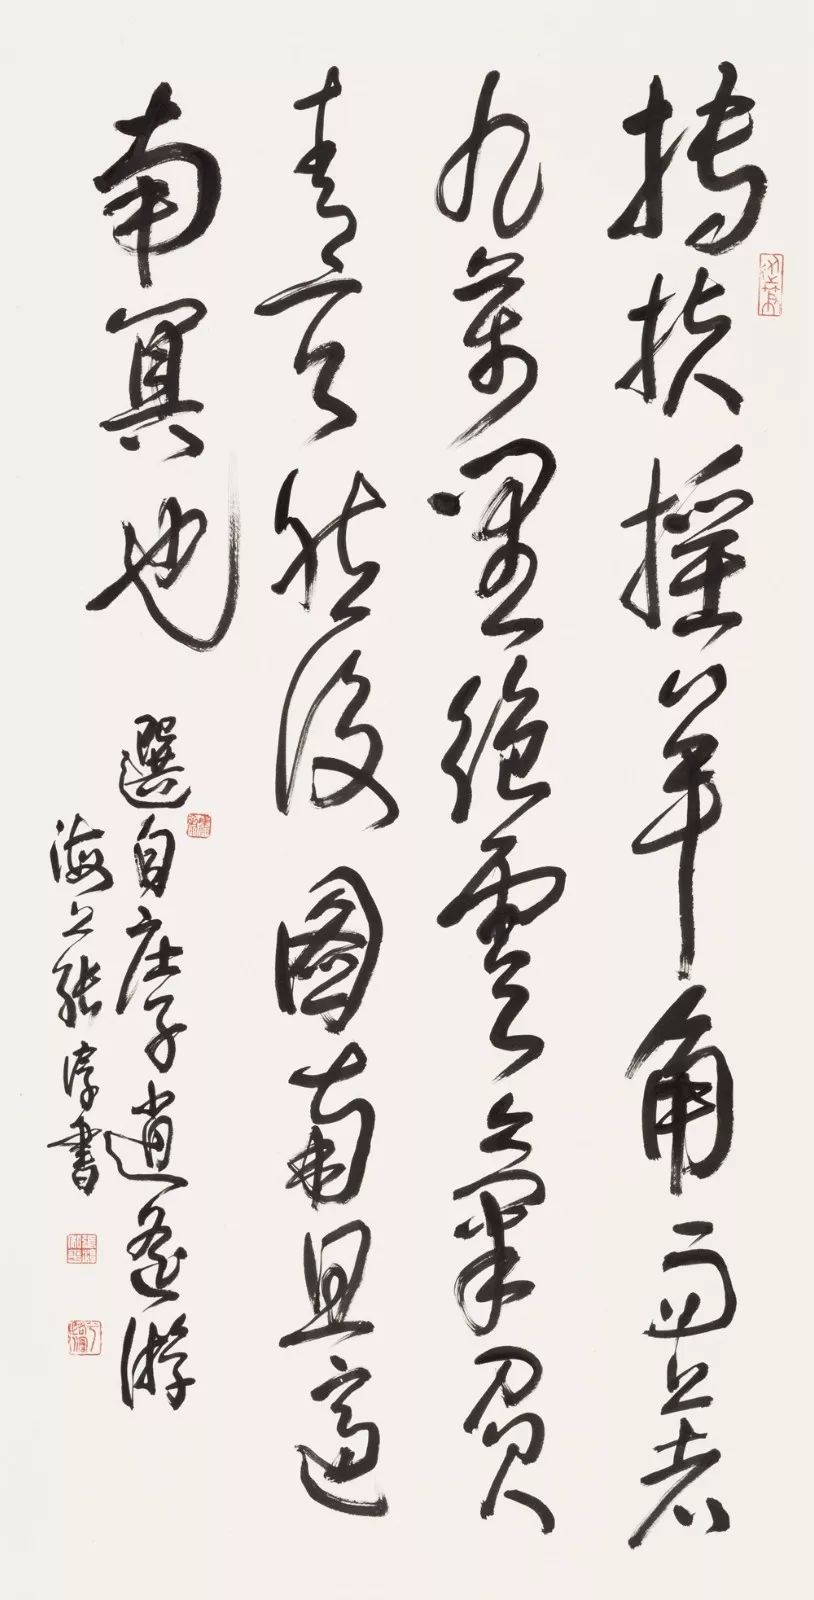 摶扶搖羊角而上者
九萬里絕雲氣負
青天然後圖南且適
南冥也
選自庄子逍遙游
海上張淳書